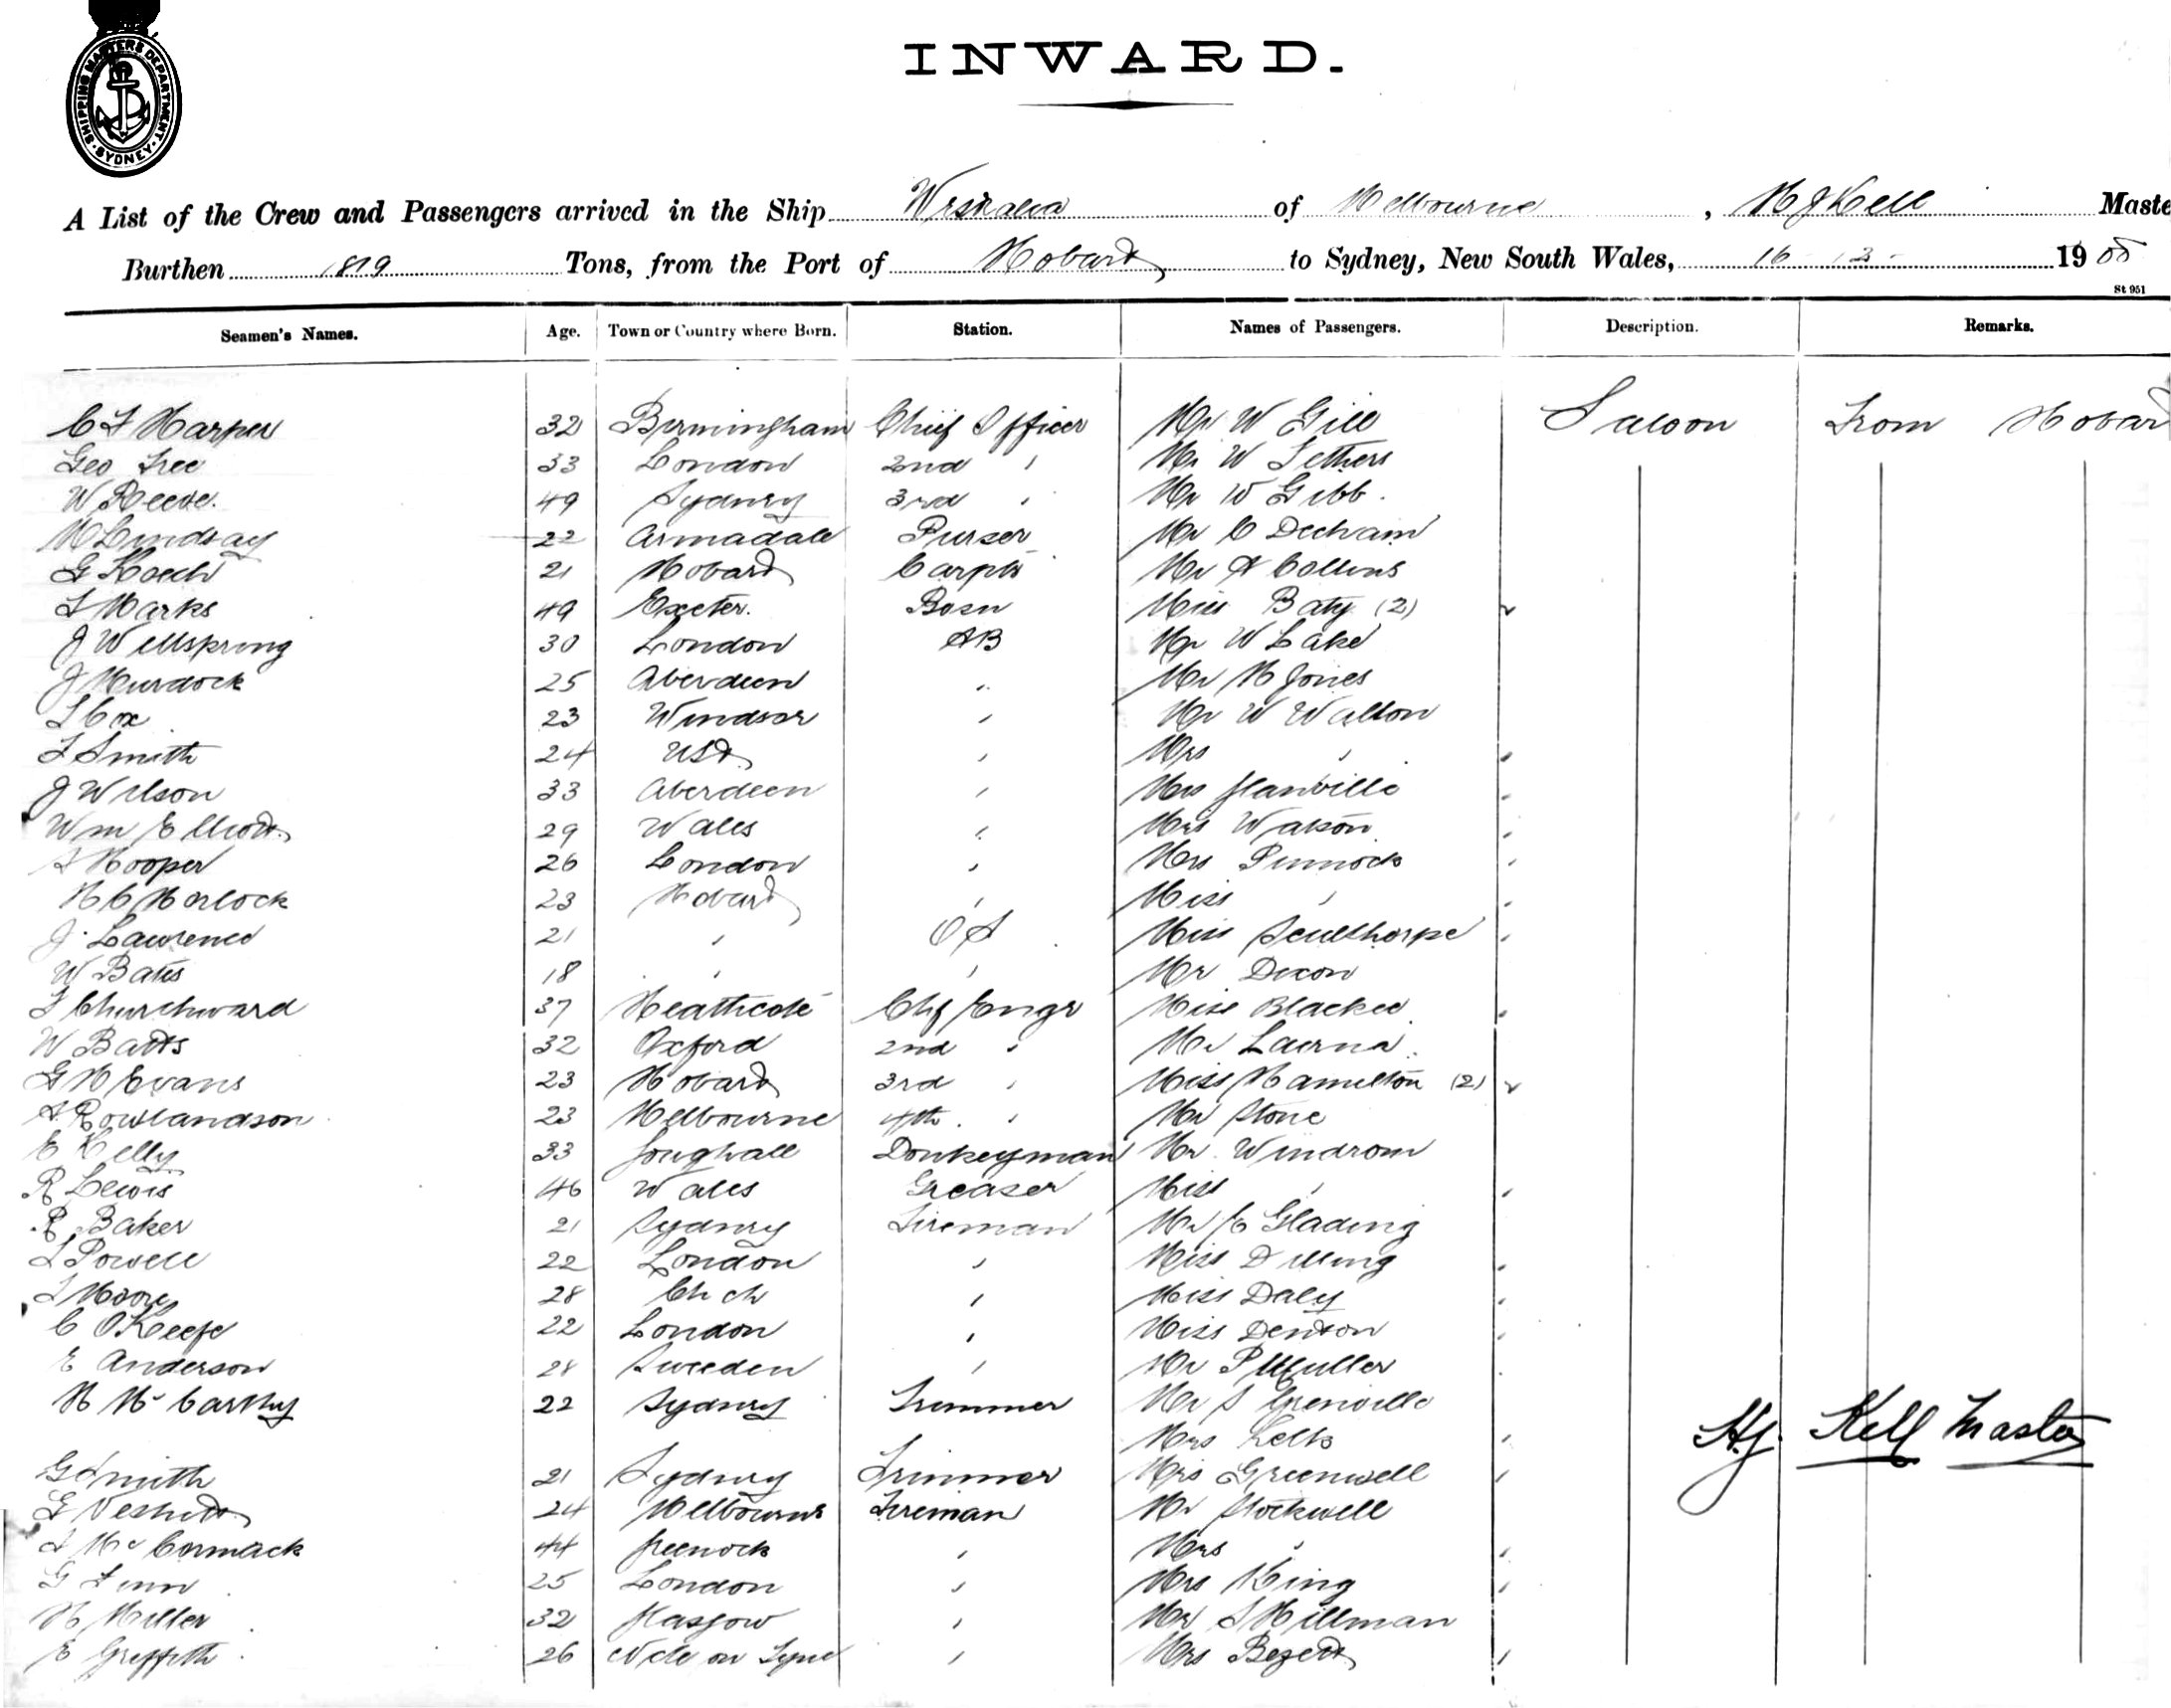 SHIPPING MASTERS DEPARTMENT · SYDNEY ·
INWARD.
A List of the Crew and Passengers arrived in the Ship Westralia of Melbourne, H J Kell Maste
Burthen 1819 Tons, from the Port of Hobart to Sydney, New South Wales, 16 - 12 - 1905
St 951
Seamen's Names. Age. Town or Country where Born. Station. Names of Passengers. Description. Remarks.
C F Harper 32 Birmingham Chief Officer Mr W Gill Saloon From Hobar
Geo Free 33 London 2nd " Mr W Lethers
W Reeve. 49 Sydney 3rd " Mr W Gibb.
H Lindsay 22 Armadale Purser Mr C Decham
G Koech 21 Hobart Carptr Mr A Collins
F Marks 49 Exeter. Bosn Miss Baty (2) ✓
J Wellspring 30 London AB Mr W Lake
J Murdock 25 Aberdeen " Mr H Jones
S Cox 23 Windsor " Mr W Walton
F Smith 24 USA " Mrs " "
J Wilson 33 Aberdeen " Mrs Glanville "
Wm Elliott 29 Wales " Mrs Watson "
S Hooper 26 London " Mrs Pinnock "
H C Horlock 23 Hobart " Miss " "
J. Lawrence 21 " OS Miss Sculthorpe "
W Bates 18 " " Mr Dixon
F Churchward 37 Heathcote Chf Engr Miss Blackie "
W Batts 32 Oxford 2nd " Mr
G H Evans 23 Hobart 3rd " Miss Hamilton (2) ✓
A Rowlandson 23 Melbourne 4th " Mr Stone
E Kelly 33 Donkeyman Mr Windrom
R Lewis 46 Wales Greaser Miss " "
R Baker 21 Sydney Fireman Mr E Glading
S Powell 22 London " Miss Dilling "
J Moore 28 Ch ch " Miss Daly "
C O'Keefe 22 London " Miss Denton "
E Anderson 28 Sweeden " Mr P Muller
H McCarthy 22 Sydney Trimmer Mr S Grenville
Mrs "
H.J. Kell Master
G Smith 21 Sydney Trimmer Mrs Greenwell "
24 Melbourne Fireman Mr Stockwell
J McCormack 44 Greenock " Mrs " "
G Finn 25 London " Mrs King "
H Miller 32 Glasgow " Mr S Hillman
E Griffith 26 Ncle on Tyne " Mrs Bezett "